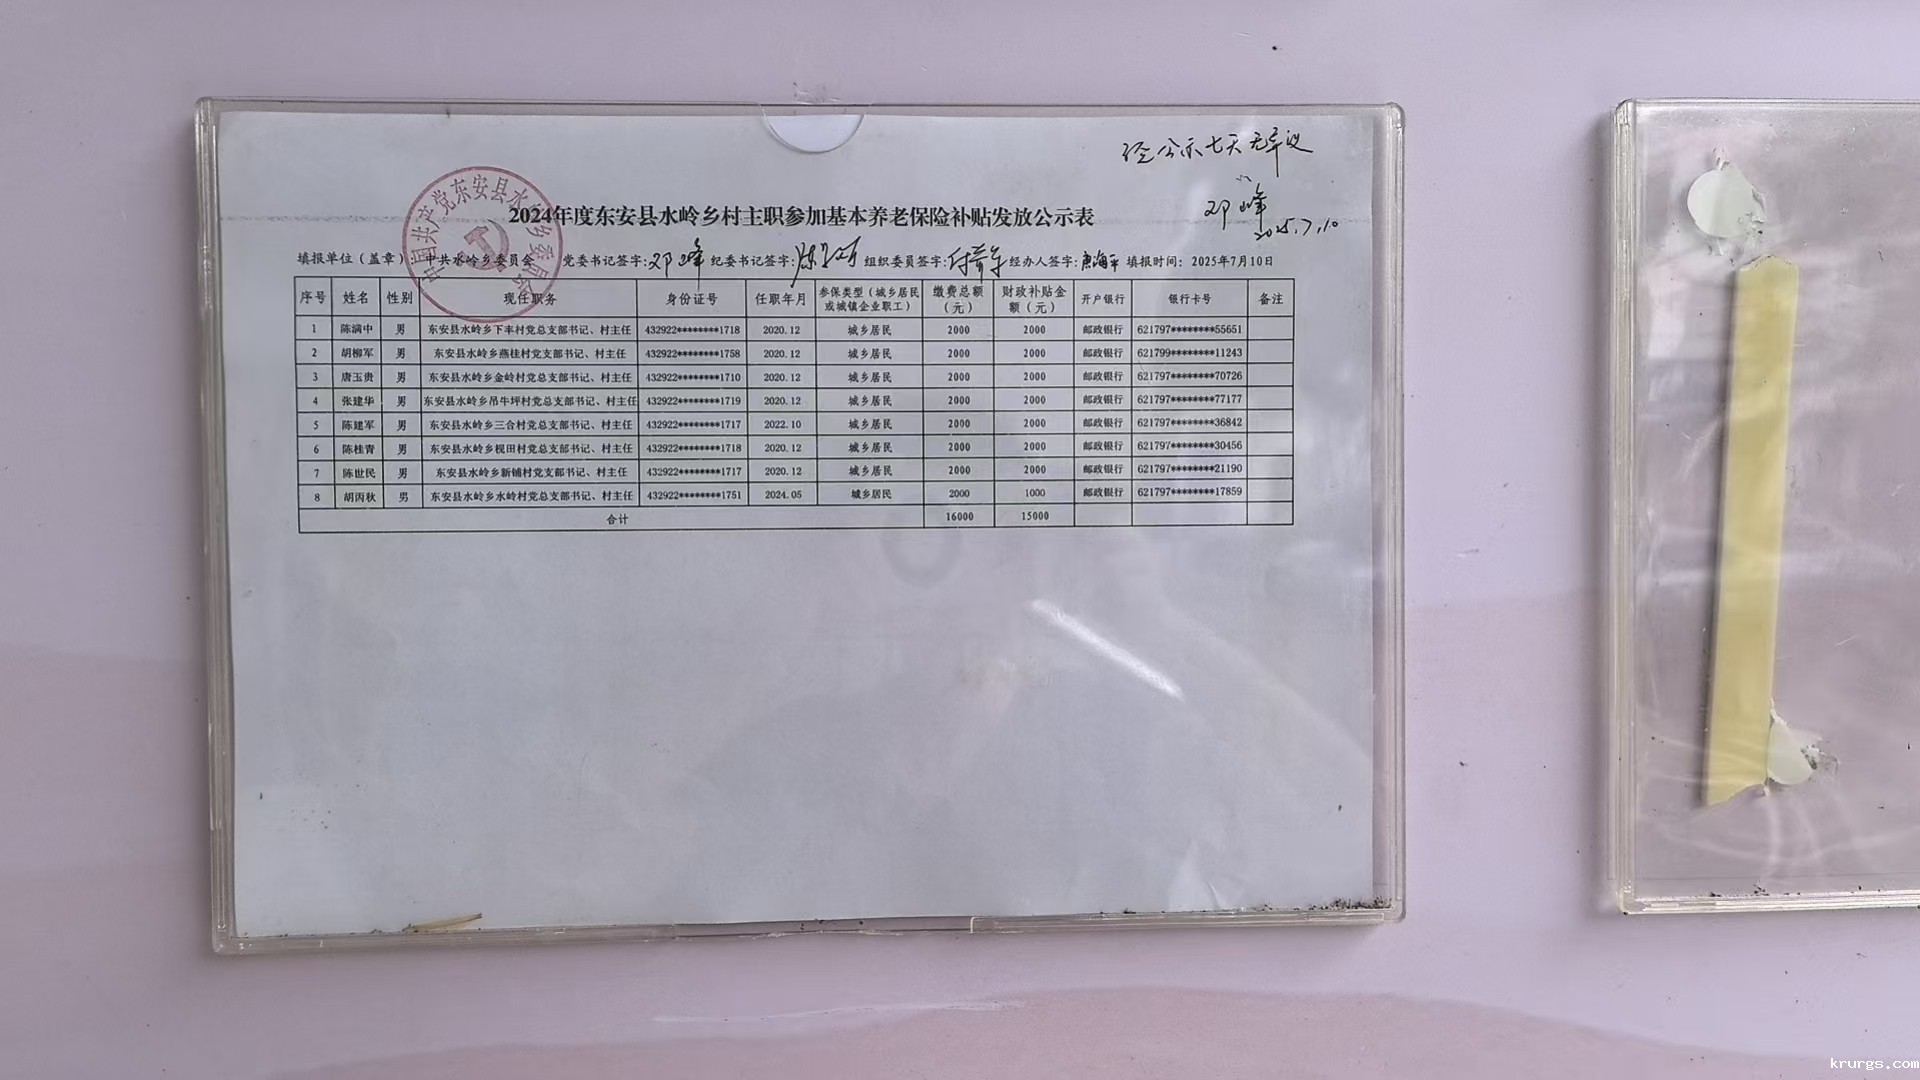 经公示七天无异议
邓峰
2025.7.10
中国共产党东安县水岭乡委员会
2024年度东安县水岭乡村主职参加基本养老保险补贴发放公示表
填报单位（盖章）：中共水岭乡委员会 党委书记签字：邓峰 纪委书记签字： 组织委员签字： 经办人签字：唐海平 填报时间：2025年7月10日
序号 姓名 性别 现任职务 身份证号 任职年月 参保类型（城乡居民或城镇企业职工） 缴费总额（元） 财政补贴金额（元） 开户银行 银行卡号 备注
1 陈满中 男 东安县水岭乡下丰村党总支部书记、村主任 432922********1718 2020.12 城乡居民 2000 2000 邮政银行 621797********55651
2 胡柳军 男 东安县水岭乡燕桂村党支部书记、村主任 432922********1758 2020.12 城乡居民 2000 2000 邮政银行 621799********11243
3 唐玉贵 男 东安县水岭乡金岭村党总支部书记、村主任 432922********1710 2020.12 城乡居民 2000 2000 邮政银行 621797********70726
4 张建华 男 东安县水岭乡吊牛坪村党总支部书记、村主任 432922********1719 2020.12 城乡居民 2000 2000 邮政银行 621797********77177
5 陈建军 男 东安县水岭乡三合村党总支部书记、村主任 432922********1717 2022.10 城乡居民 2000 2000 邮政银行 621797********36842
6 陈桂青 男 东安县水岭乡枧田村党总支部书记、村主任 432922********1718 2020.12 城乡居民 2000 2000 邮政银行 621797********30456
7 陈世民 男 东安县水岭乡新铺村党支部书记、村主任 432922********1717 2020.12 城乡居民 2000 2000 邮政银行 621797********21190
8 胡丙秋 男 东安县水岭乡水岭村党总支部书记、村主任 432922********1751 2024.05 城乡居民 2000 1000 邮政银行 621797********17859
合计 16000 15000
krurgs.com